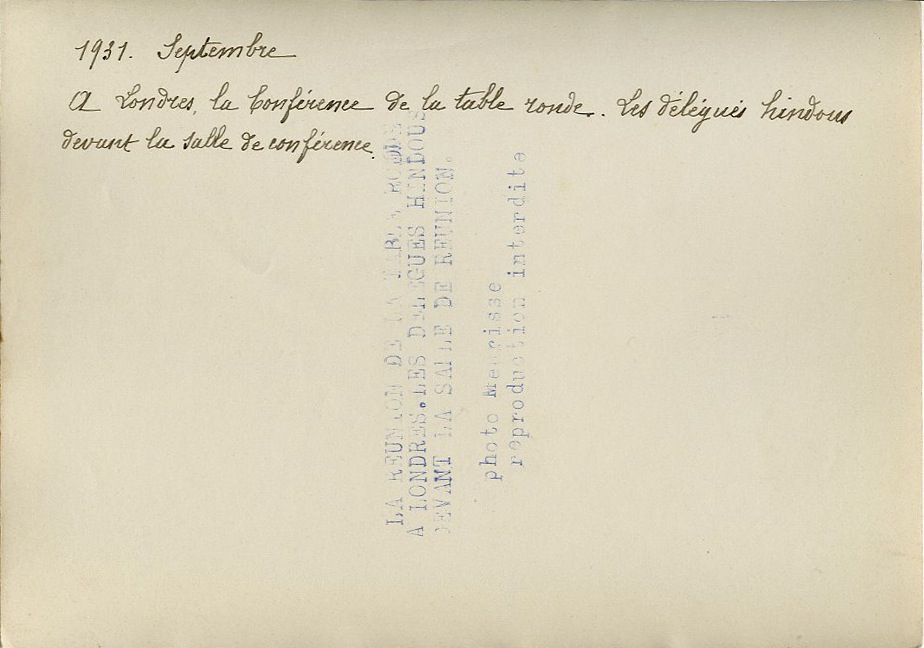 1931. Septembre
A Londres, la Conférence de la table ronde. Les délégués hindous
devant la salle de conférence.
LA REUNION DE LA TABLE RONDE
A LONDRES.LES DELEGUES HINDOUS
DEVANT LA SALLE DE REUNION.
photo Meurisse
reproduction interdite